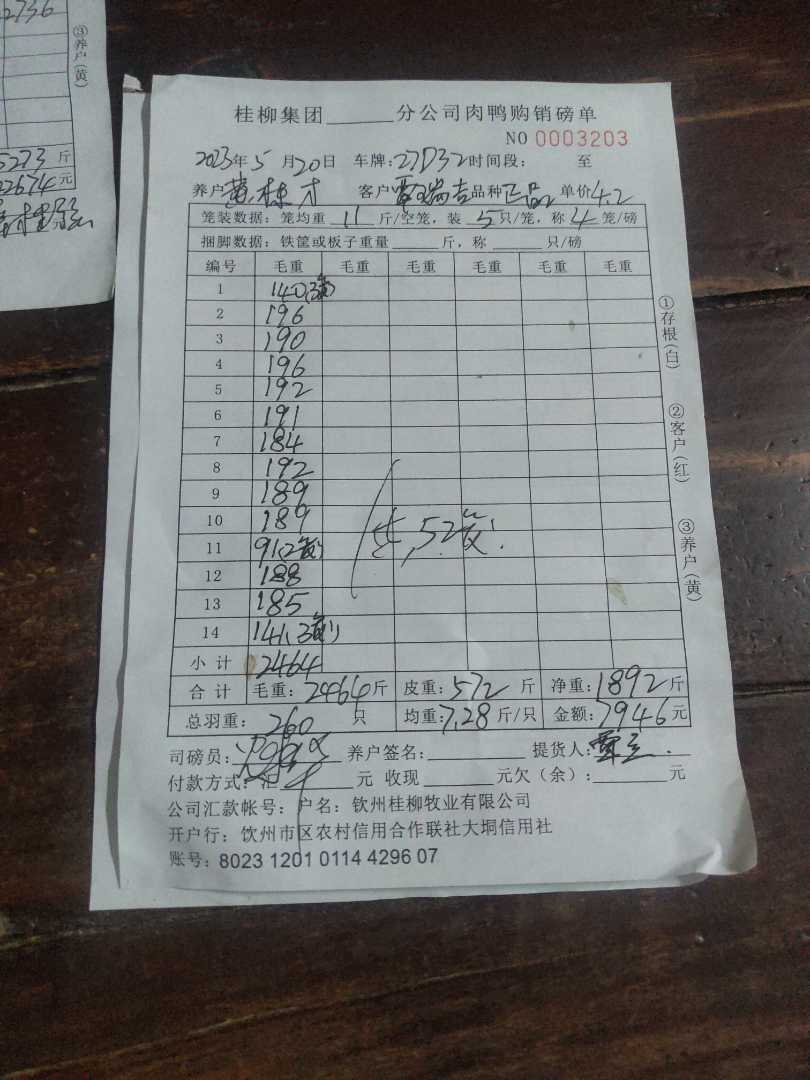 2736
③养户(黄)
5273 斤
22674 元
桂柳集团______分公司肉鸭购销磅单
NO 0003203
2023年5月20日 车牌:27D32 时间段: 至
养户 黄栋才 客户 覃瑞吉 品种 正品 单价 4.2
笼装数据: 笼均重 11 斤/空笼, 装 5 只/笼, 称 4 笼/磅
捆脚数据: 铁筐或板子重量______斤, 称______只/磅
编号 毛重 毛重 毛重 毛重 毛重 毛重
1 140(3笼)
2 196
3 190
4 196
5 192
6 191
7 184
8 192
9 189
10 189
11 91(2笼)
12 188
13 185
14 141(3笼)
共,52笼.
小计 2464
合计 毛重: 2464斤 皮重: 572 斤 净重: 1892斤
总羽重: 260 只 均重: 7.28 斤/只 金额: 7946元
司磅员: 养户签名: 提货人:
付款方式: 汇 元 收现 元欠(余): 元
公司汇款帐号: 户名: 钦州桂柳牧业有限公司
开户行: 钦州市区农村信用合作联社大垌信用社
账号: 8023 1201 0114 4296 07
①存根(白)
②客户(红)
③养户(黄)